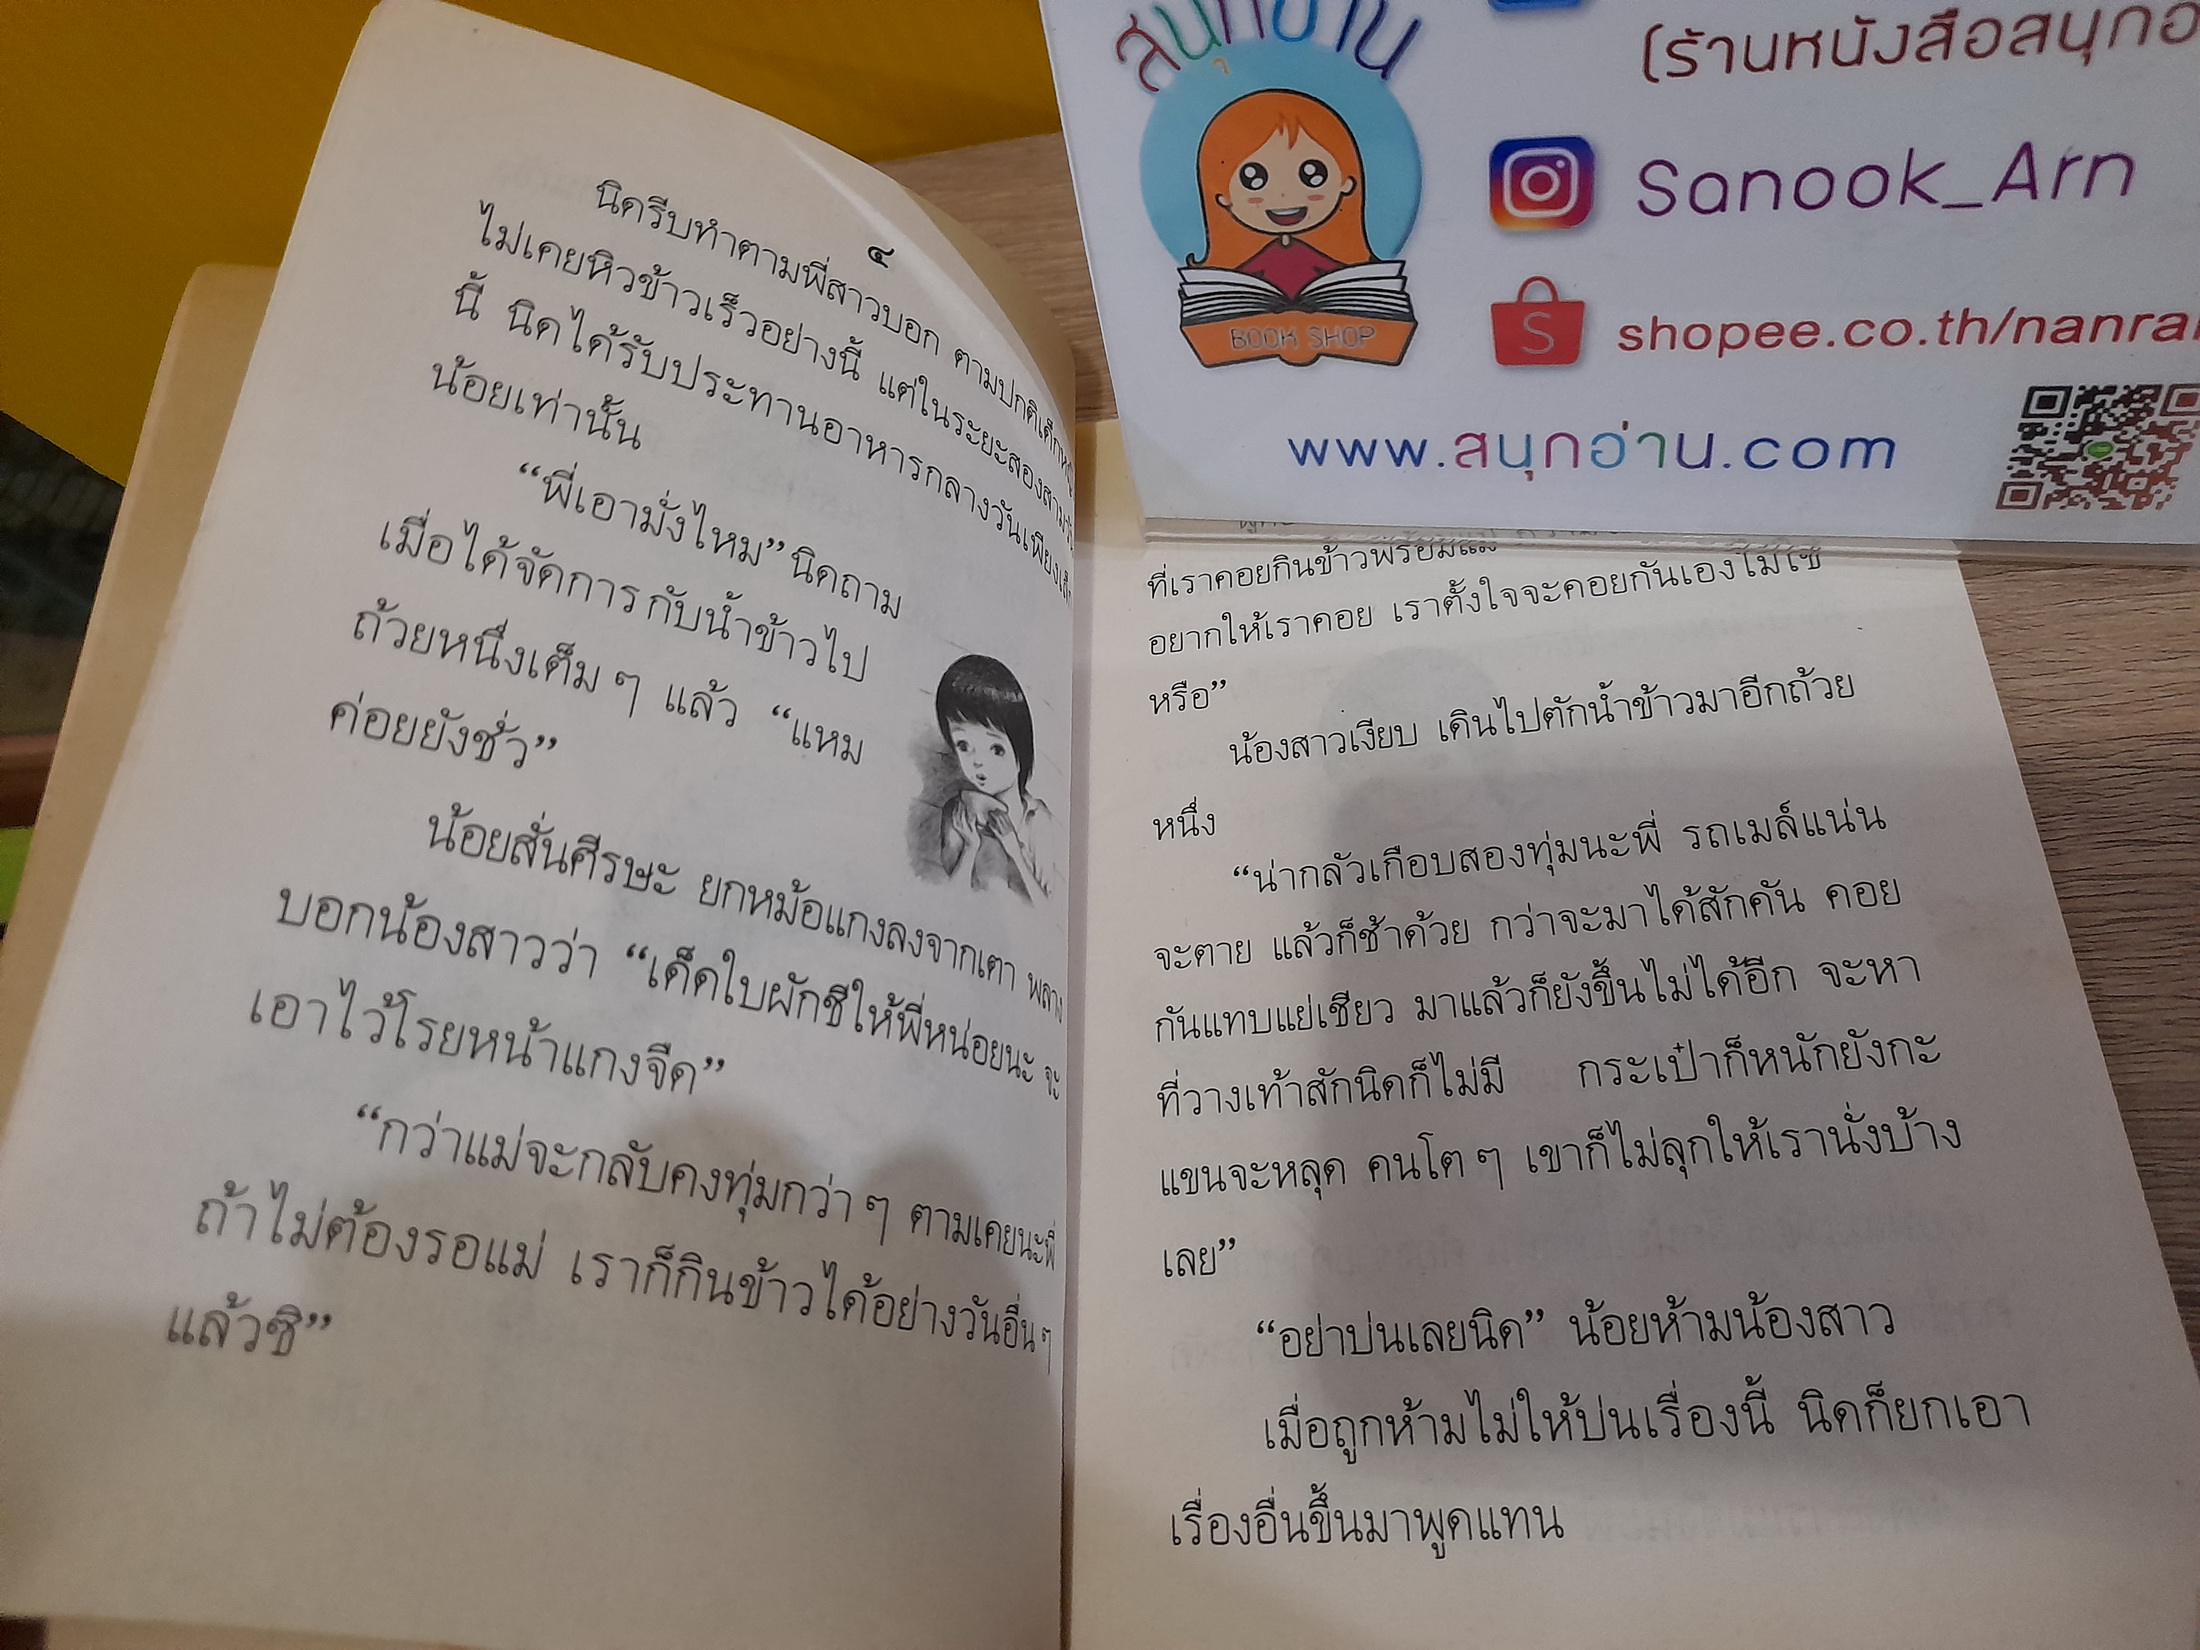 ๔
นิดรีบทำตามพี่สาวบอก ตามปกติเด็กหญิง
ไม่เคยหิวข้าวเร็วอย่างนี้ แต่ในระยะสองสามวัน
นี้ นิดได้รับประทานอาหารกลางวันเพียงเล็ก
น้อยเท่านั้น
“พี่เอามั่งไหม” นิดถาม
เมื่อได้จัดการกับน้ำข้าวไป
ถ้วยหนึ่งเต็มๆ แล้ว “แหม
ค่อยยังชั่ว”
น้อยสั่นศีรษะ ยกหม้อแกงลงจากเตา พลาง
บอกน้องสาวว่า “เด็ดใบผักชีให้พี่หน่อยนะ จะ
เอาไว้โรยหน้าแกงจืด”
“กว่าแม่จะกลับคงทุ่มกว่าๆ ตามเคยนะพี่
ถ้าไม่ต้องรอแม่ เราก็กินข้าวได้อย่างวันอื่นๆ
แล้วซิ”
ที่เราคอยกินข้าวพร้อมแม่
อยากให้เราคอย เราตั้งใจจะคอยกันเองไม่ใช่
หรือ”
น้องสาวเงียบ เดินไปตักน้ำข้าวมาอีกถ้วย
หนึ่ง
“น่ากลัวเกือบสองทุ่มนะพี่ รถเมล์แน่น
จะตาย แล้วก็ช้าด้วย กว่าจะมาได้สักคัน คอย
กันแทบแย่เชียว มาแล้วก็ยังขึ้นไม่ได้อีก จะหา
ที่วางเท้าสักนิดก็ไม่มี กระเป๋าก็หนักยังกะ
แขนจะหลุด คนโตๆ เขาก็ไม่ลุกให้เรานั่งบ้าง
เลย”
“อย่าบ่นเลยนิด” น้อยห้ามน้องสาว
เมื่อถูกห้ามไม่ให้บ่นเรื่องนี้ นิดก็ยกเอา
เรื่องอื่นขึ้นมาพูดแทน
สนุกอ่าน
BOOK SHOP
(ร้านหนังสือสนุกอ
Sanook_Arn
S
shopee.co.th/nanra
www.สนุกอ่าน.com